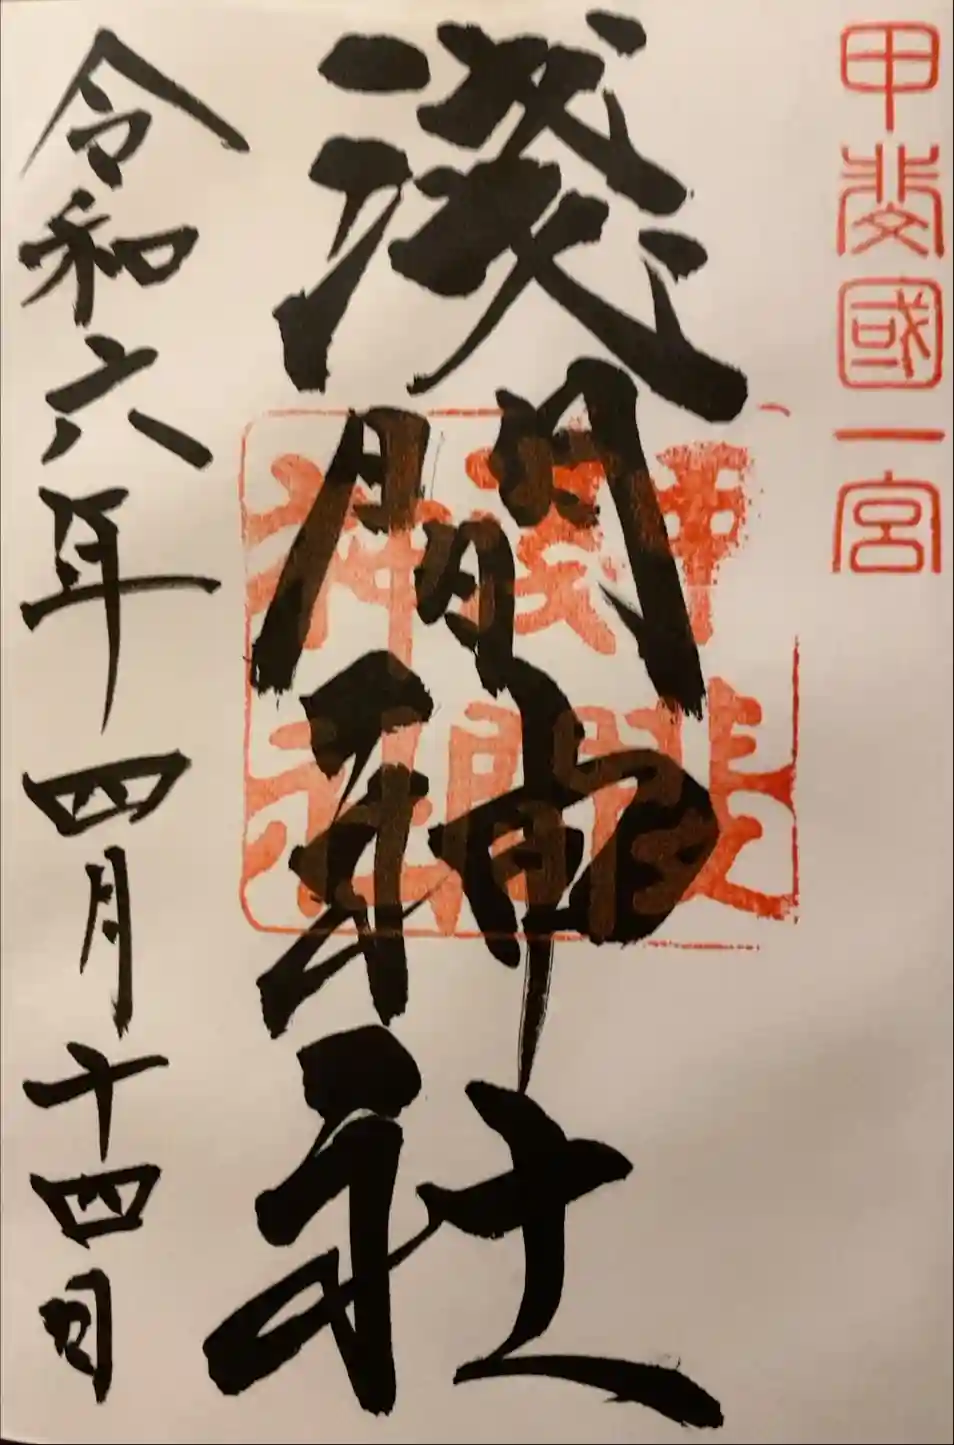 甲斐國一宮
淺間神社
甲斐
淺間
神社
令和六年四月十四日